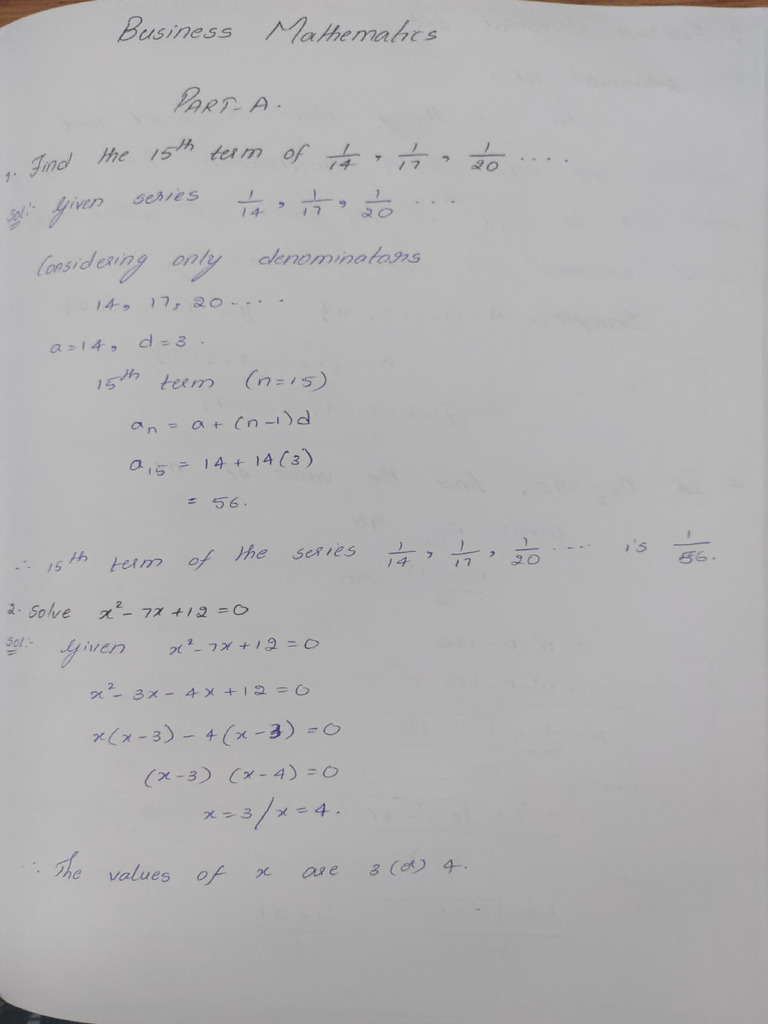 Business Mathematics
PART-A.
1. Find the 15th term of 1/14, 1/17, 1/20 ....
Sol:- Given series 1/14, 1/17, 1/20 ...
Considering only denominators
14, 17, 20 ....
a=14, d=3.
15th term (n=15)
an = a+(n-1)d
a15 = 14+14(3)
= 56.
∴ 15th term of the series 1/14, 1/17, 1/20 ... is 1/56.
2. Solve x²-7x+12=0
Sol:- Given x²-7x+12=0
x²-3x-4x+12=0
x(x-3)-4(x-3)=0
(x-3) (x-4)=0
x=3/x=4.
∴ The values of x are 3 (or) 4.